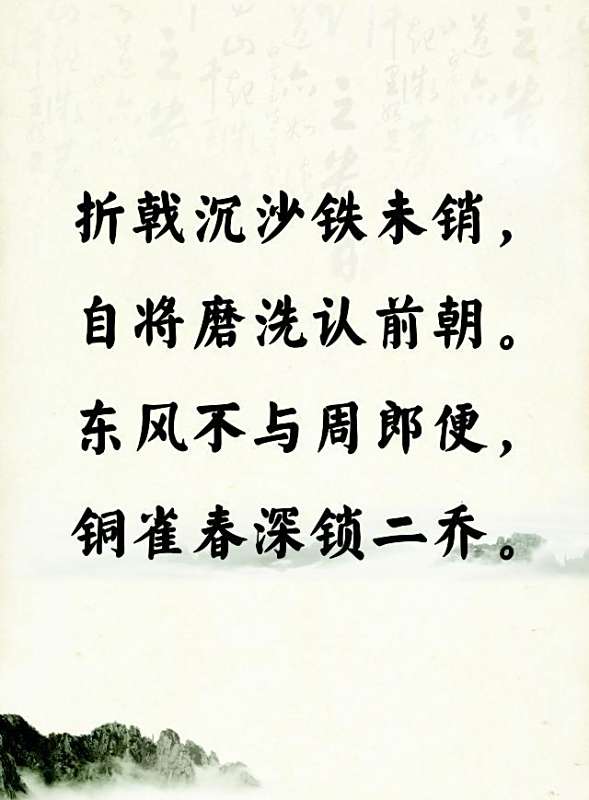 折戟沉沙铁未销，
自将磨洗认前朝。
东风不与周郎便，
铜雀春深锁二乔。